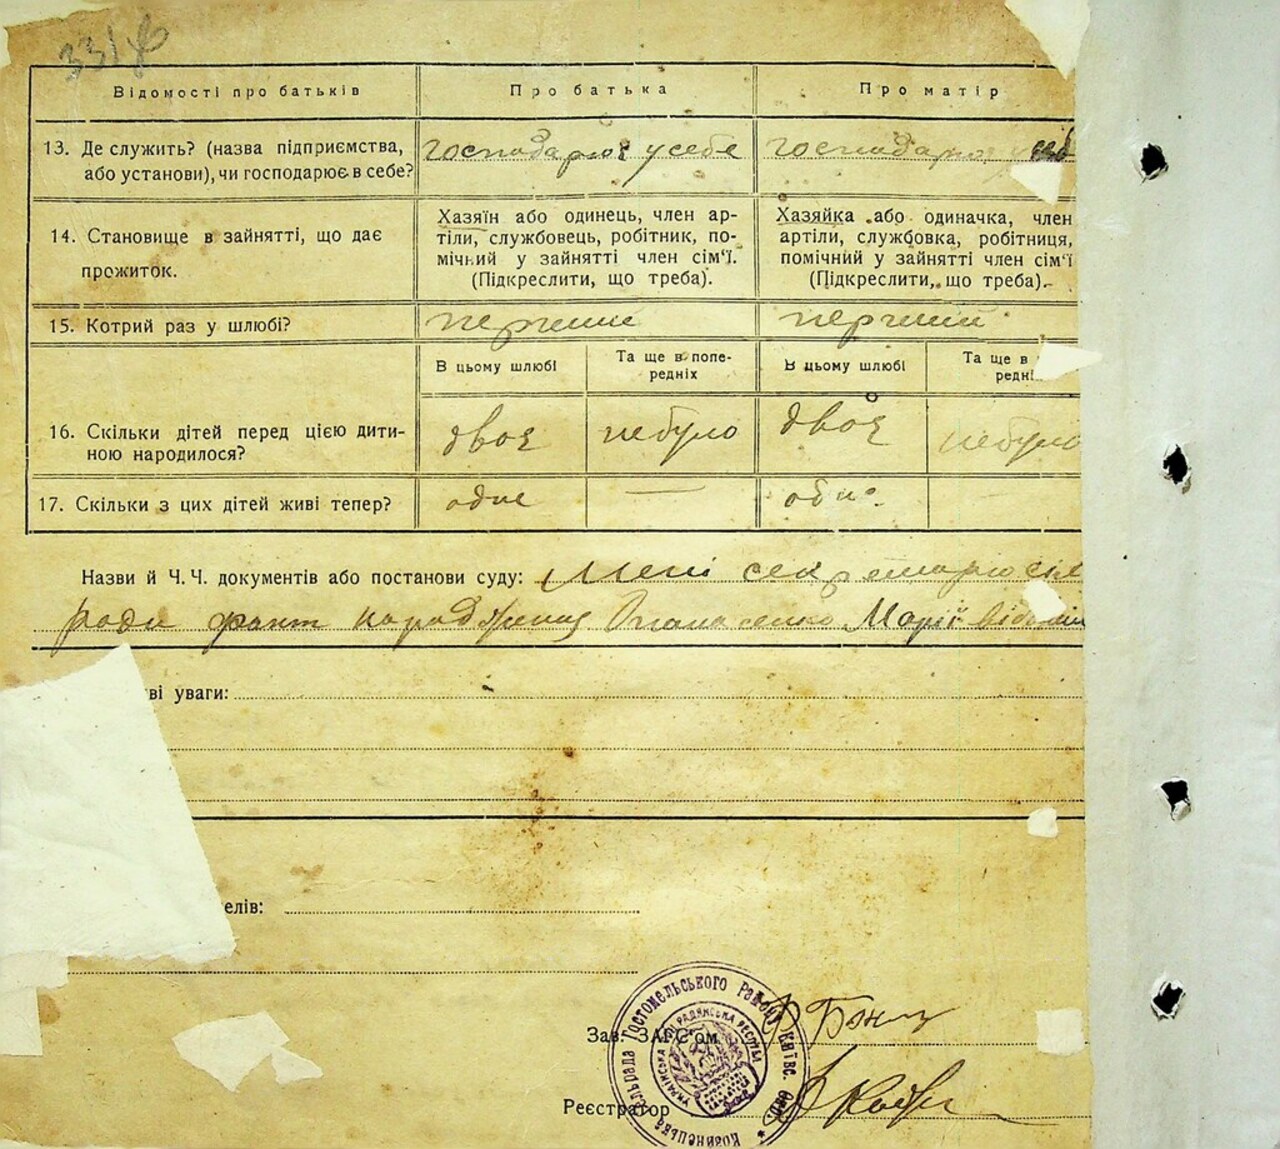 331
Відомості про батьків Про батька Про матір
13. Де служить? (назва підприємства, або установи), чи господарює в себе?
господарює у себе господарює у себе
14. Становище в зайнятті, що дає прожиток.
Хазяїн або одинець, член ар-
тіли, службовець, робітник, по-
мічний у зайнятті член сім'ї.
(Підкреслити, що треба).
Хазяйка або одиначка, член
артіли, службовка, робітниця,
помічний у зайнятті член сім'ї
(Підкреслити, що треба).
15. Котрий раз у шлюбі? перший перший
В цьому шлюбі Та ще в попе- В цьому шлюбі Та ще в
редніх редні
16. Скільки дітей перед цією дити-
ною народилося?
двоє небуло двоє небуло
17. Скільки з цих дітей живі тепер? одне — одно —
Назви й Ч. Ч. документів або постанови суду: Мені секретарю сіл
ради факт народження Опанасенко Марії відомий
ві уваги:
елів:
Зав. ЗАГС'ом
Реєстратор
льрада Гостомельського Району Київс. Окр.